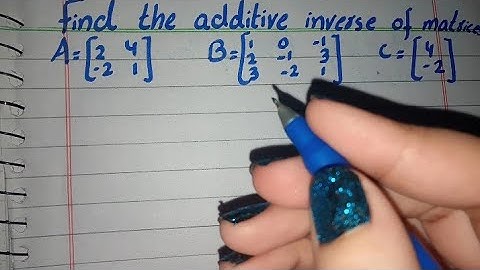 Find the additive inverse of matrices
A=[2 4 B=[1 0 -1 C=[4
-2 1] 2 -1 3 -2]
3 -2 1]